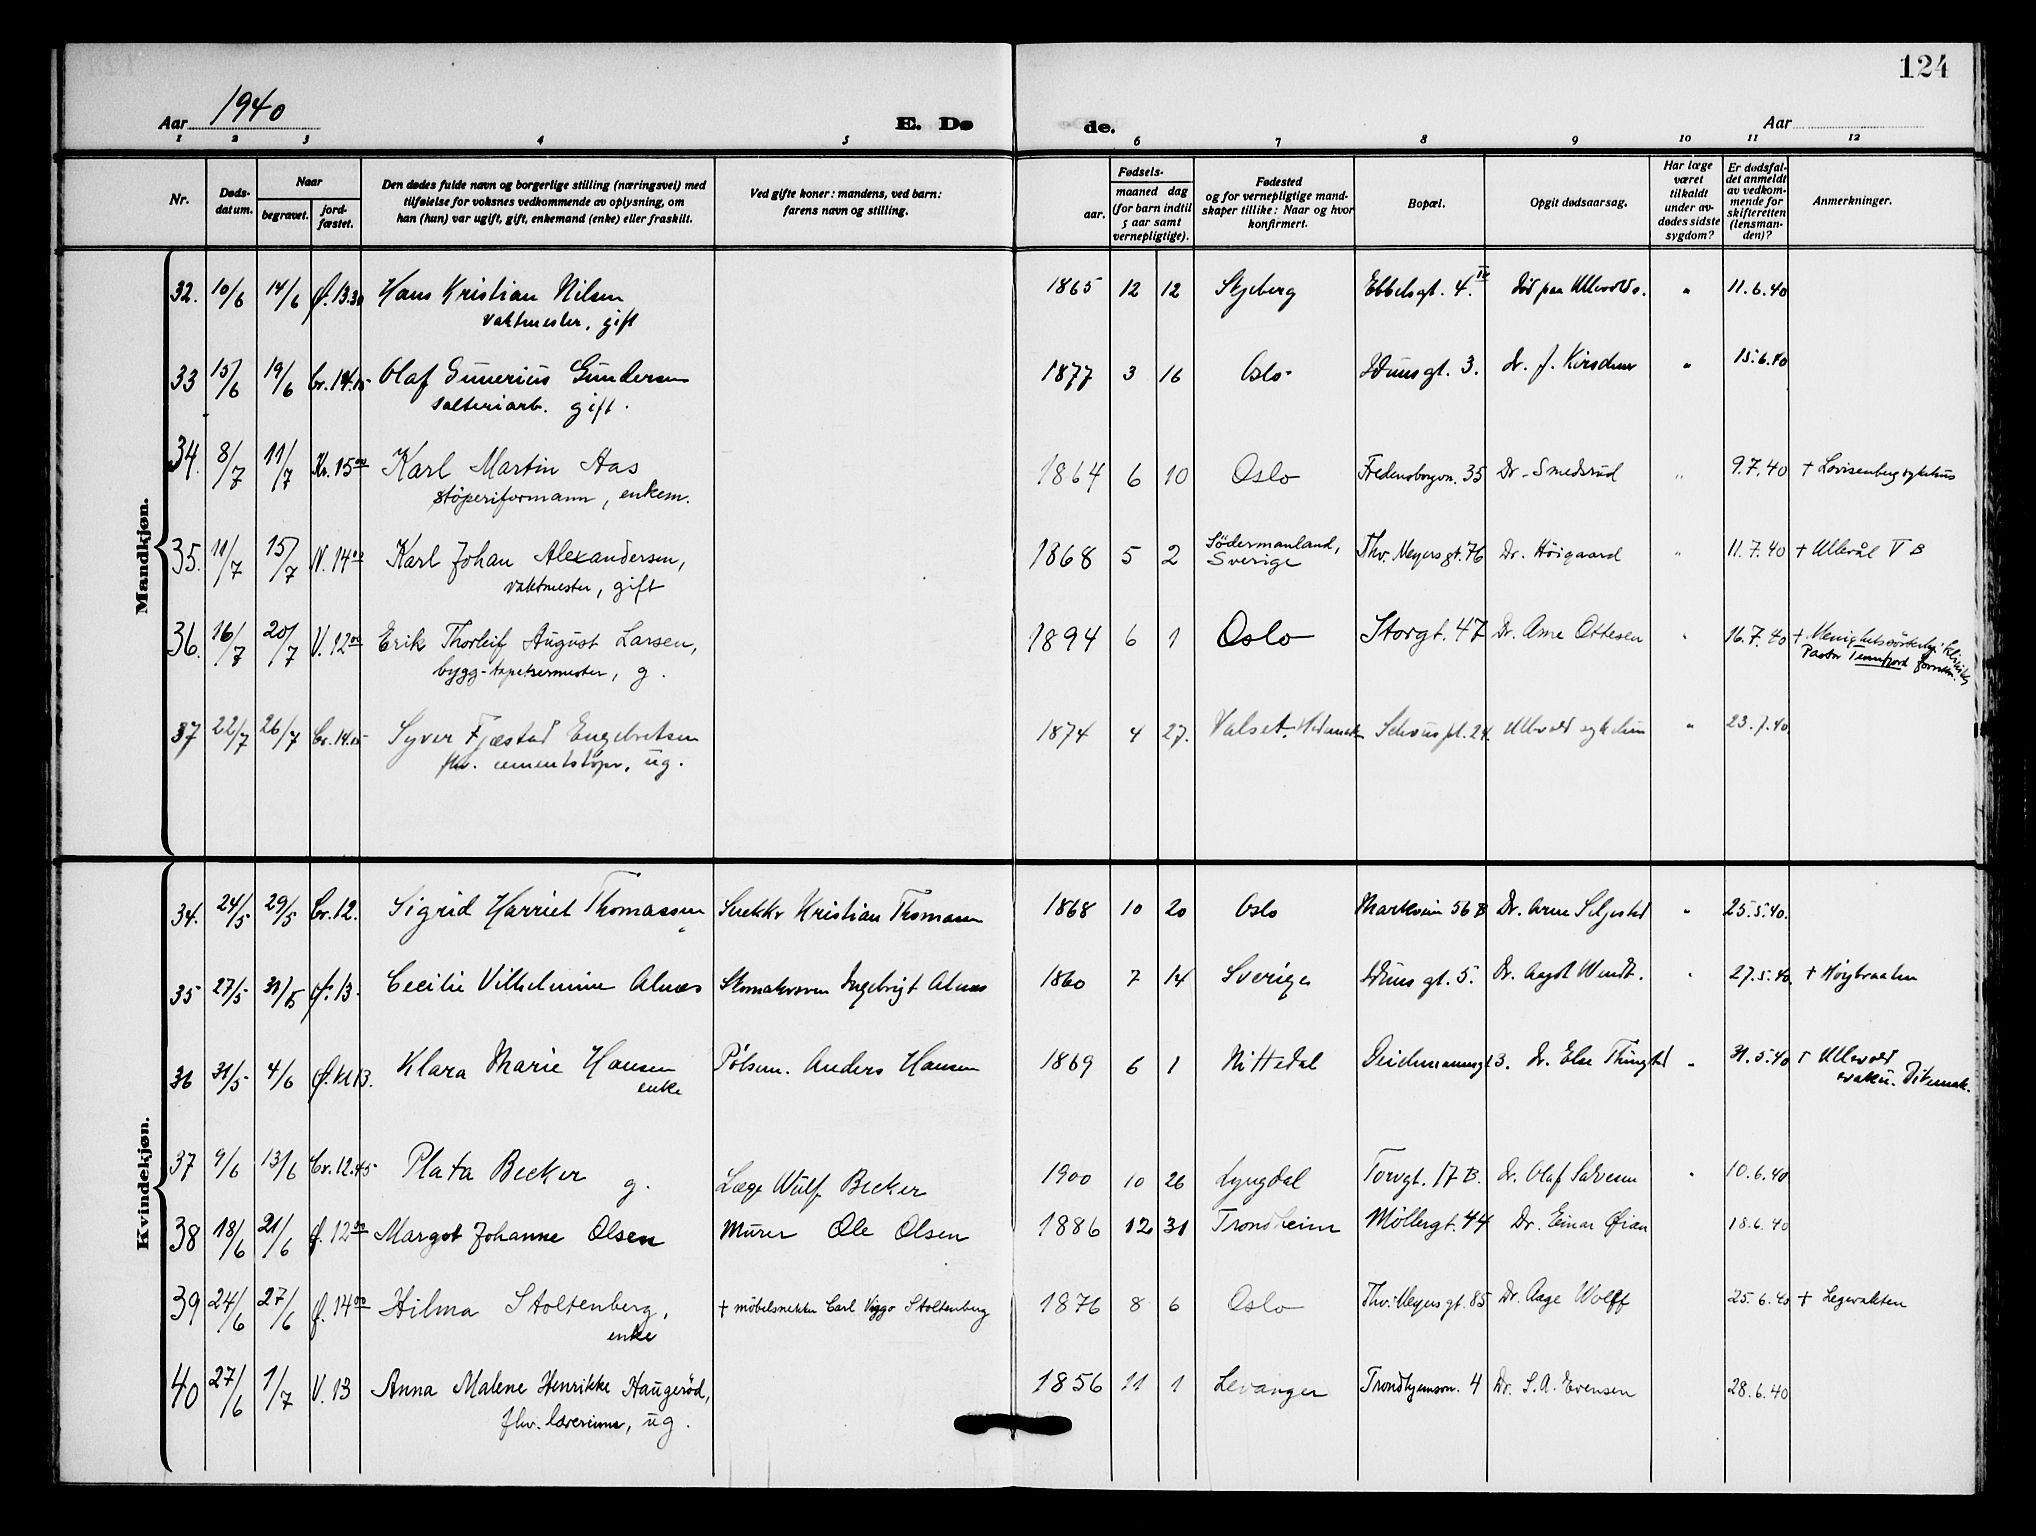 124
Aar 1940
E. Dø
de.
Aar
1 2 3 4 5 6 7 8 9 10 11 12
Nr.
Døds-
datum.
Naar
begravet.
jord-
fæstet.
Den dødes fulde navn og borgerlige stilling (næringsvei) med
tilføielse for voksnes vedkommende av oplysning, om
han (hun) var ugift, gift, enkemand (enke) eller fraskilt.
Ved gifte koner: mandens, ved barn:
farens navn og stilling.
Fødsels-
aar.
maaned dag
(for barn indtil
5 aar samt
vernepligtige).
Fødested
og for vernepligtige mand-
skaper tillike: Naar og hvor
konfirmert.
Bopæl.
Opgit dødsaarsag.
Har læge
været
tilkaldt
under av-
dødes sidste
sygdom?
Er dødsfal-
det anmeldt
av vedkom-
mende for
skifteretten
(lensman-
den)?
Anmerkninger.
Mandkjøn.
32. 10/6 14/6 Ø. 13.30 Hans Kristian Nilsen 1865 12 12 Skjeberg Ebbelsgt. 4. IV død paa Ullevold s. " 11.6.40
vaktmester, gift
33 15/6 19/6 Cr. 14.15 Olaf Gunerius Gundersen 1877 3 16 Oslo Idunsgt. 3. Dr. J. " 15.6.40
gift.
34. 8/7 11/7 Kr. 15 00 Karl Martin Aas 1864 6 10 Oslo Fredensborgvn. 35 Dr. Smedsrud " 9.7.40 † Lovisenberg sykehus
støperiformann, enkem.
35. 11/7 15/7 N. 14 00 Karl Johan Alexandersen, 1868 5 2 Södermanland, Thv. Meyersgt. 76 Dr. Høigaard " 11.7.40 † Ullevål V B
Sverige
vaktmester, gift
36. 16/7 20/7 V. 12 00 Erik Thorleif August Larsen, 1894 6 1 Oslo Storgt. 47 Dr. Arne Ottesen " 16.7.40 † Menighetssøsterhj. Klinikk
bygg-tapetsermester, g. Pastor Tennfjord
37 22/7 26/7 Cr. 14.15 Syver Fjæstad Engebretsen 1874 4 27. Valset, Hedmark Schouspl. 24. Ullevold sykehus " 23.7.40
fhv. cementstøper, ug.
Kvindekjøn.
34. 24/5 29/5 Cr. 12. Sigrid Harriet Thomassen Snekker Kristian Thomassen 1868 10 20 Oslo Markveien 56 B Dr. Arne Seljestad " 25.5.40.
35 27/5 31/5 Ø. 13. Cecilie Vilhelmine Alnæs Ingebrigt Alnæs 1860 7 14 Sverige Idunsgt. 5. Dr. Aagot Wendt. " 27.5.40. † Høybraaten
36 31/5 4/6 Ø. kl 13. Klara Marie Hansen Pølsem. Anders Hansen 1869 6 1 Nittedal Deichmannsgt 3. Dr. Else " 31.5.40 † Ullevold
enke evaku. Dikemark.
37 9/6 13/6 Cr. 12.45 Plata Becker g. Læge Wulf Becker 1900 10 26 Lyngdal Torvgt. 17 B. Dr. Olaf " 10.6.40
38 18/6 21/6 Ø. 12 00 Margot Johanne Olsen Murer Ole Olsen 1886 12 31 Trondheim Møllergt. 44 Dr. Einar Øien 18.6.40
39 24/6 27/6 Ø. 14 00 Hilma Stoltenberg, † møbelsnekker Carl Viggo Stoltenberg 1876 8 6 Oslo Thv. Meyersgt. 85 Dr. Aage Wolff 25.6.40 † Legevakten
enke
40 27/6 1/7 V. 13 Anna Malene Henrikke Haugerød, 1856 11 1 Levanger Trondhjemsvn. 4 Dr. S. A. Evensen 28.6.40
fhv. lærerinne, ug.